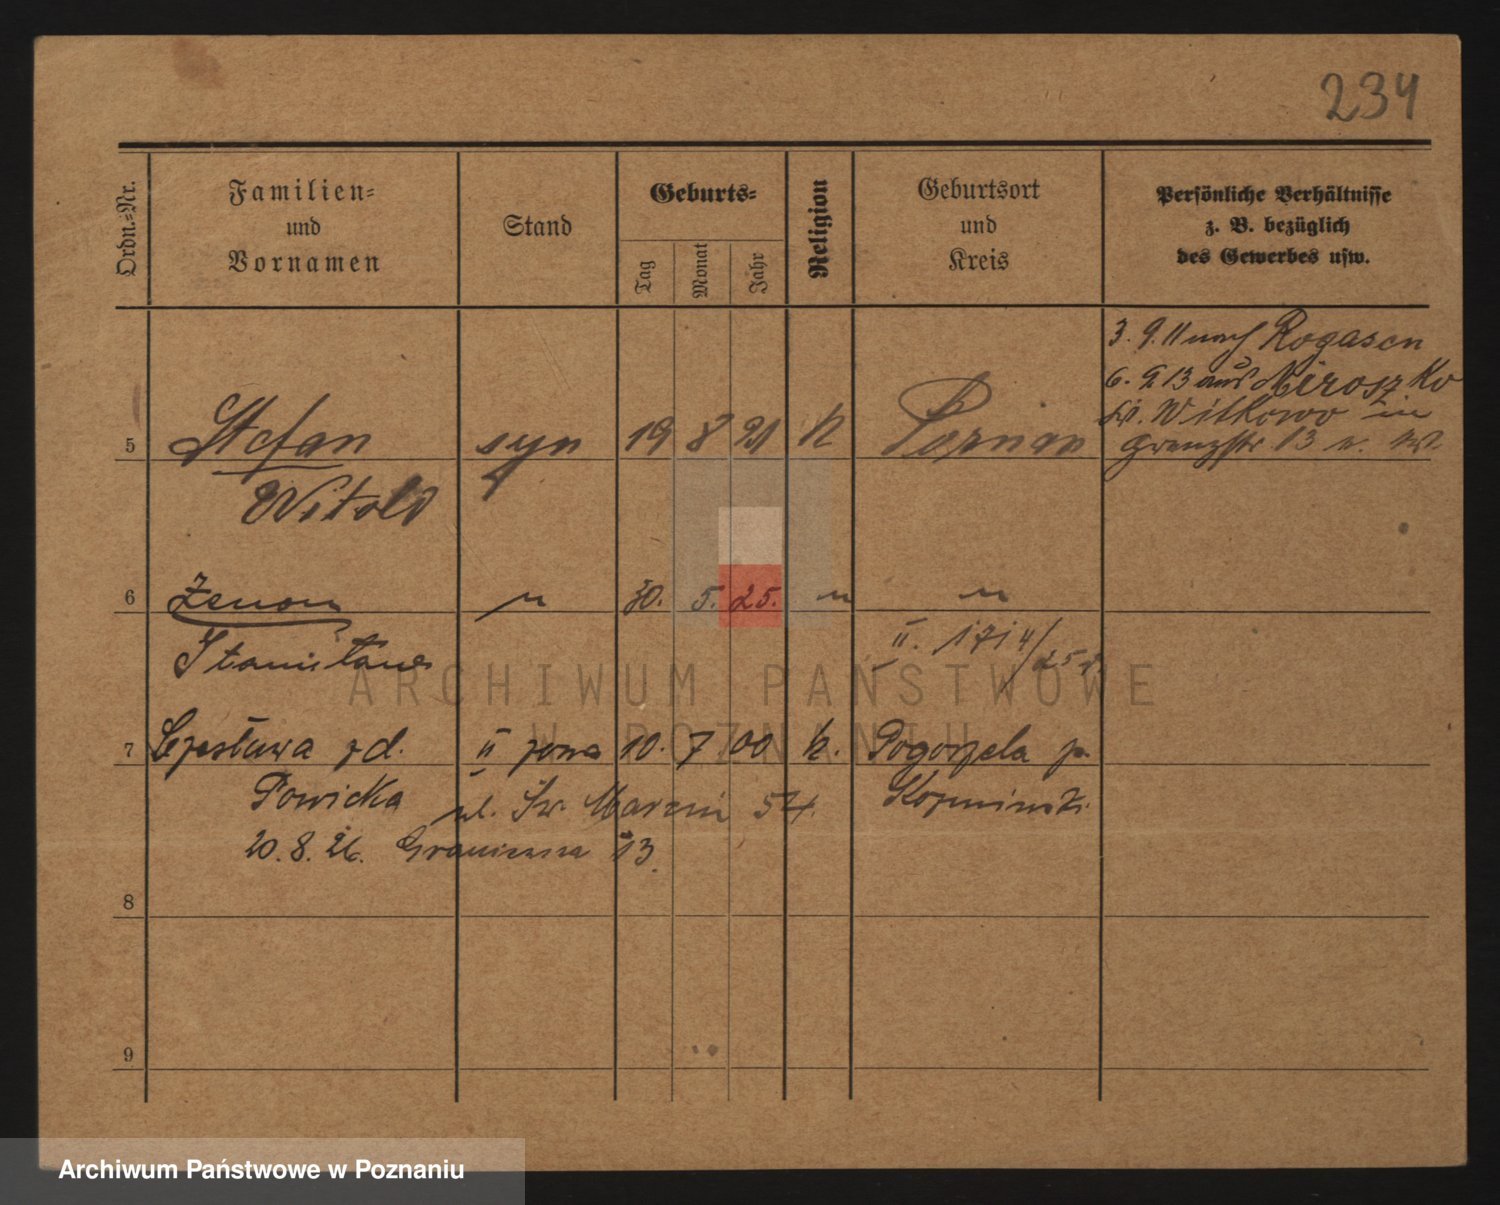 234
Ordn.=Nr.
Familien=
und
Vornamen
Stand
Geburts=
Tag
Monat
Jahr
Religion
Geburtsort
und
Kreis
Persönliche Verhältnisse
z. B. bezüglich
des Gewerbes usw.
3. 9. 11 nach Rogasen
6. 9 13 aus
Witkowo in
Grenzstr 13
5 Stefan syn 19 8 21 k Poznań
Witold
6 Zenon " 30. 5. 25. " "
II. 1714/25
Stanisław
7 Czesława zd. II żona 10. 7 00 k. Pogorzela p.
Powicka ul. Św. Marcin 54. Koźmiński
20. 8. 26. Graniczna 13.
8
9
ARCHIWUM PAŃSTWOWE
W POZNANIU
Archiwum Państwowe w Poznaniu